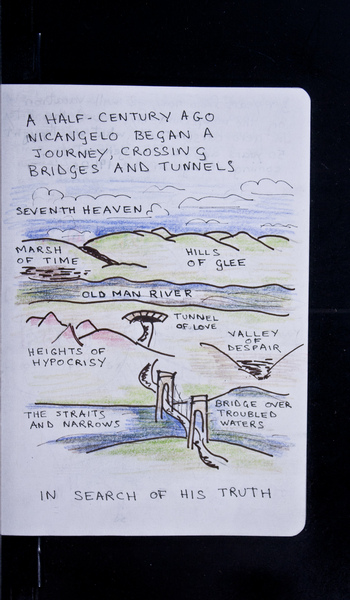 A HALF-CENTURY AGO
NICANGELO BEGAN A
JOURNEY, CROSSING
BRIDGES AND TUNNELS
SEVENTH HEAVEN
MARSH
OF TIME
HILLS
OF GLEE
OLD MAN RIVER
TUNNEL
OF LOVE
VALLEY
OF
DESPAIR
HEIGHTS OF
HYPOCRISY
THE STRAITS
AND NARROWS
BRIDGE OVER
TROUBLED
WATERS
IN SEARCH OF HIS TRUTH